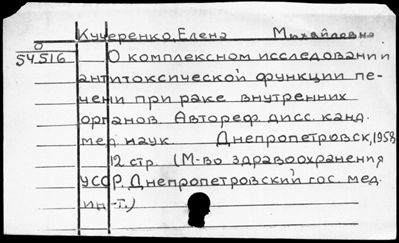 Кучеренко, Елена Михайловна
О
54516
О комплексном исследовании
антитоксической функции пе-
чени при раке внутренних
органов. Автореф. дисс. канд.
мед. наук. Днепропетровск, 1958
12 стр. (М-во здравоохранения
УССР. Днепропетровский гос. мед.
ин-т.)